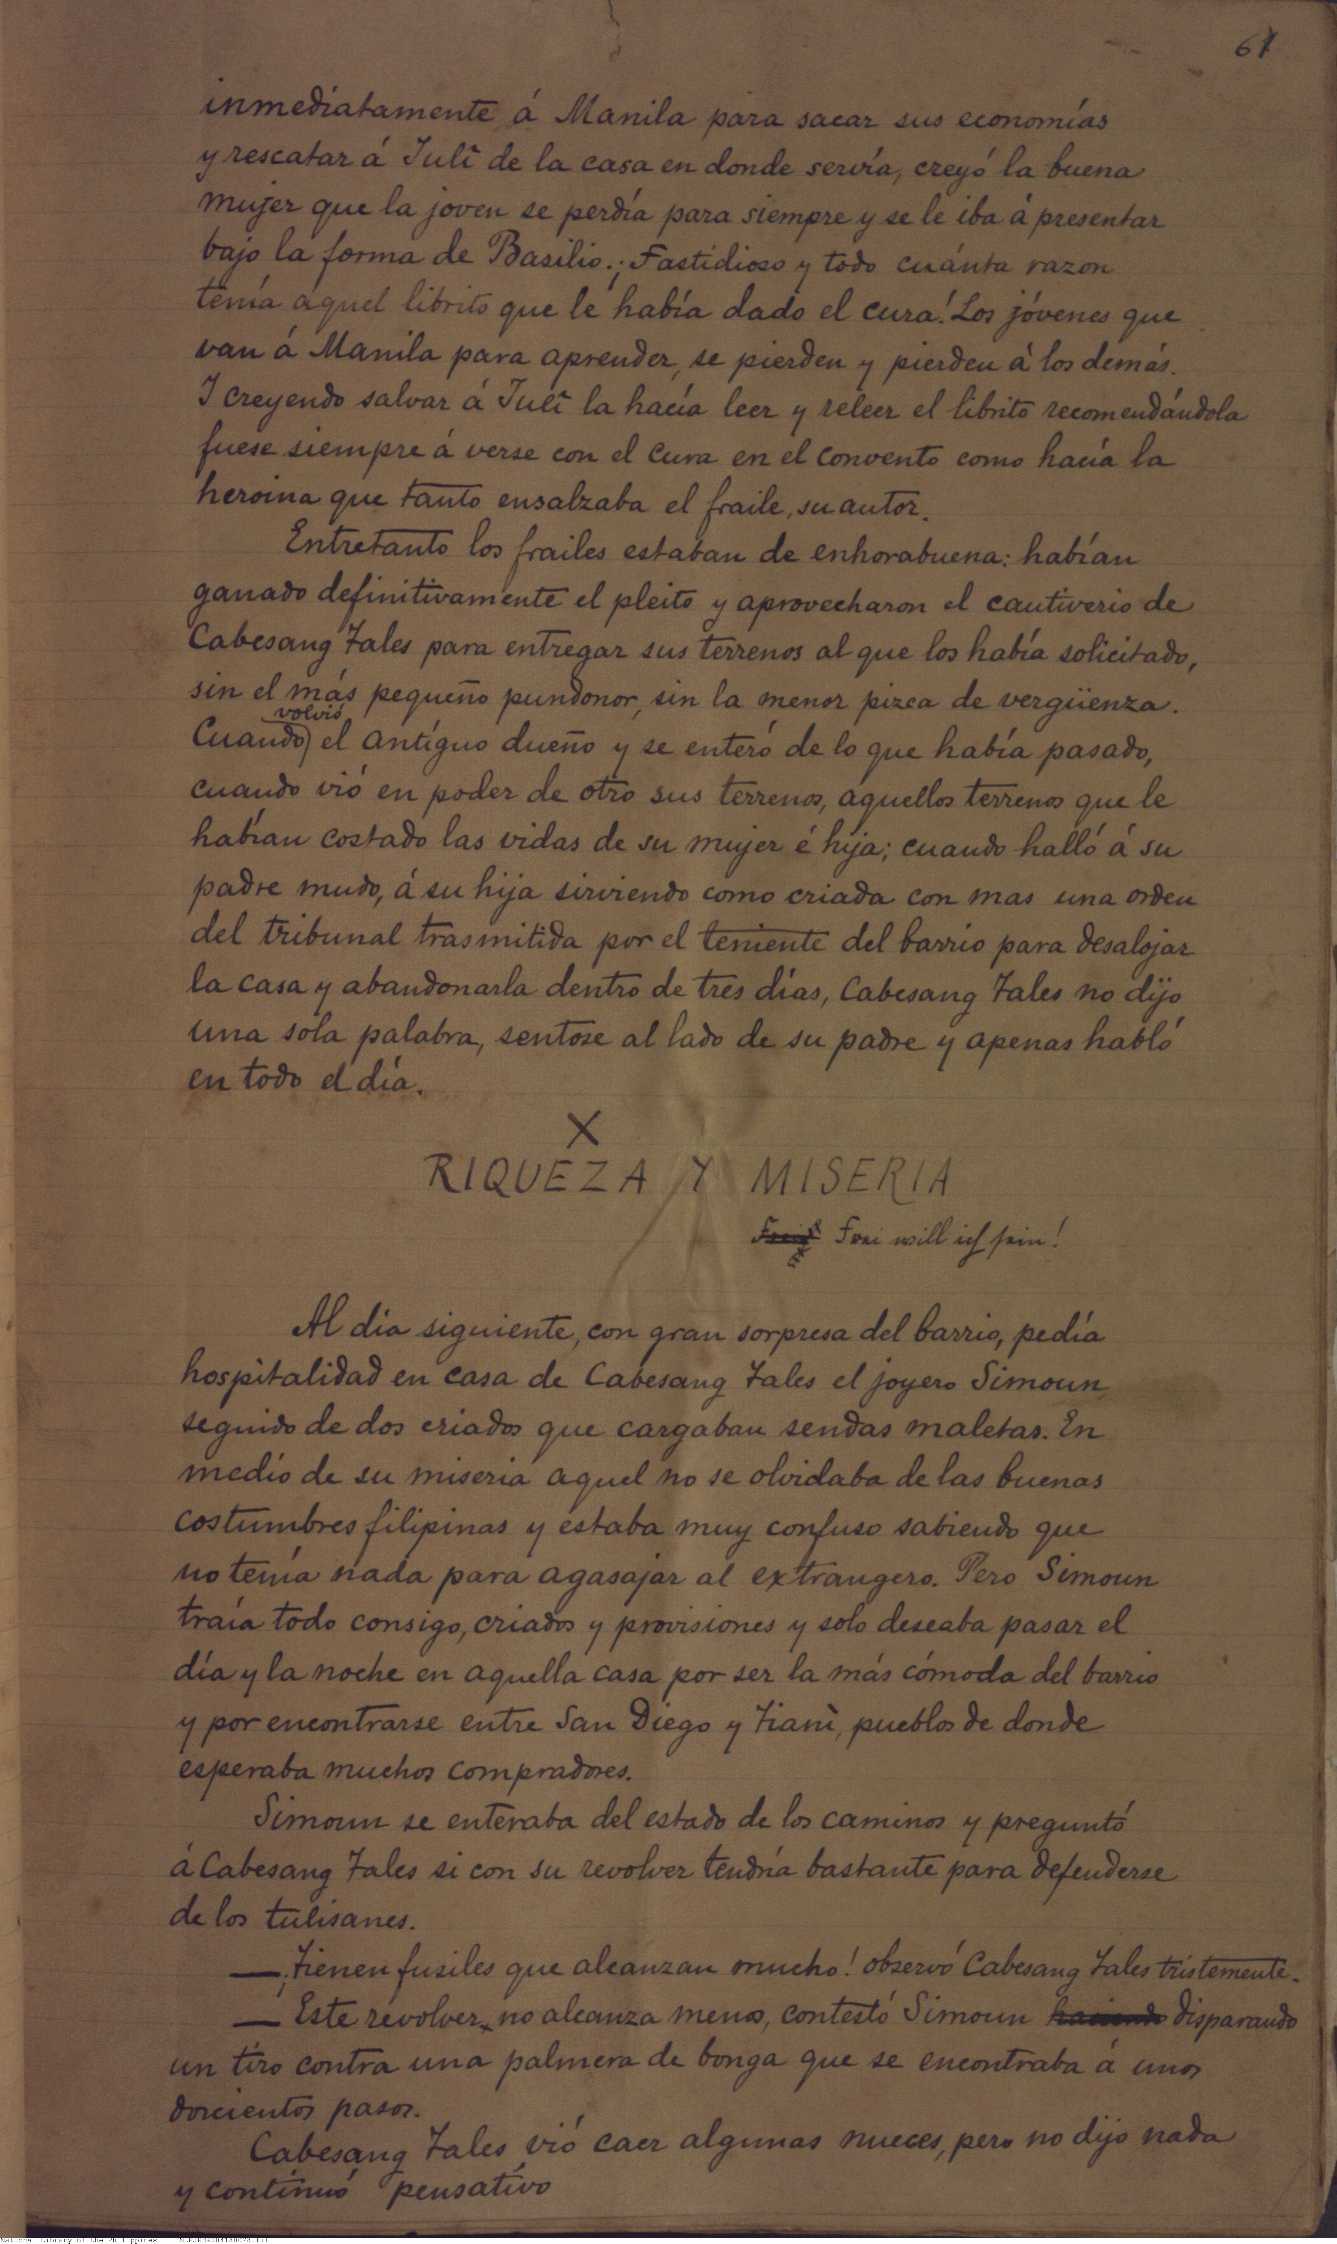 61
inmediatamente á Manila para sacar sus economías
y rescatar á Julî de la casa en donde servía, creyó la buena
mujer que la joven se perdía para siempre y se le iba á presentar
bajo la forma de Basilio. ¡Fastidioso y todo cuánta razon
tenía aquel librito que le había dado el cura! Los jóvenes que
van á Manila para aprender, se pierden y pierden á los demás.
I creyendo salvar á Julî la hacía leer y releer el librito recomendándola
fuese siempre á verse con el cura en el convento como hacía la
heroina que tanto ensalzaba el fraile, su autor.
Entretanto los frailes estaban de enhorabuena: habían
ganado definitivamente el pleito y aprovecharon el cautiverio de
Cabesang Tales para entregar sus terrenos al que los había solicitado,
sin el más pequeño pundonor, sin la menor pizca de vergüenza.
volvió
Cuando el antíguo dueño y se enteró de lo que había pasado,
cuando vió en poder de otro sus terrenos, aquellos terrenos que le
habían costado las vidas de su mujer é hija; cuando halló á su
padre mudo, á su hija sirviendo como criada con mas una orden
del tribunal trasmitida por el teniente del barrio para desalojar
la casa y abandonarla dentro de tres días, Cabesang Tales no dijo
una sola palabra, sentose al lado de su padre y apenas habló
en todo el día.
X
RIQUEZA Y MISERIA
Frei will ich sein!
Al día siguiente, con gran sorpresa del barrio, pedía
hospitalidad en casa de Cabesang Tales el joyero Simoun
seguido de dos criados que cargaban sendas maletas. En
medio de su miseria aquel no se olvidaba de las buenas
costumbres filipinas y estaba muy confuso sabiendo que
no tenía nada para agasajar al extrangero. Pero Simoun
traía todo consigo, criados y provisiones y solo deseaba pasar el
día y la noche en aquella casa por ser la más cómoda del barrio
y por encontrarse entre San Diego y Tianì, pueblos de donde
esperaba muchos compradores.
Simoun se enteraba del estado de los caminos y preguntó
á Cabesang Tales si con su revolver tendría bastante para defenderse
de los tulisanes.
— ¡Tienen fusiles que alcanzan mucho! observó Cabesang Tales tristemente.
— Este revolver no alcanza menos, contestó Simoun haciendo disparando
un tiro contra una palmera de bonga que se encontraba á unos
doscientos pasos.
Cabesang Tales vió caer algunas nueces, pero no dijo nada
y continuó pensativo